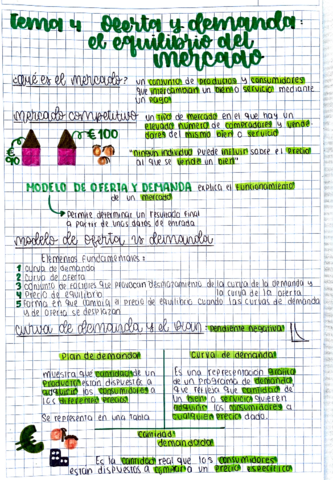 Tema 4 Oferta y demanda:
el equilibrio del
mercado
¿Qué es el mercado? un conjunto de productos y consumidores
que intercambian un bien o servicio mediante
un pago
mercado competitivo un tipo de mercado en el que hay un
elevado número de compradores y vende-
dores del mismo bien o servicio
€100
€
90
"ningún individuo puede influir sobre el precio
al que se vende un bien"
MODELO DE OFERTA Y DEMANDA explica el funcionamiento
de un mercado
Permite determinar un resultado final
a partir de unos datos de entrada
modelo de oferta vs demanda
Elementos Fundamentales:
1 curva de demanda
2 curva de oferta
3 conjunto de factores que provocan desplazamientos de la curva de la demanda y
la curva de la oferta
4 Precio de equilibrio
5 Forma en que cambia el precio de equilibrio cuando las curvas de demanda
y de oferta se desplazan
curva de demanda y el plan: pendiente negativa
Plan de demanda
Curva de demanda
muestra que cantidad de un
producto están dispuestos a
adquirir los consumidores a
los diferentes precios
Se representa en una tabla
Es una representación gráfica
de un programa de demanda,
que refleja que cantidad de
un bien o servicio quieren
adquirir los consumidores a
cualquier precio dado.
Cantidad
demandada
€
Es la cantidad real que los consumidores
están dispuestos a comprar a un precio específico